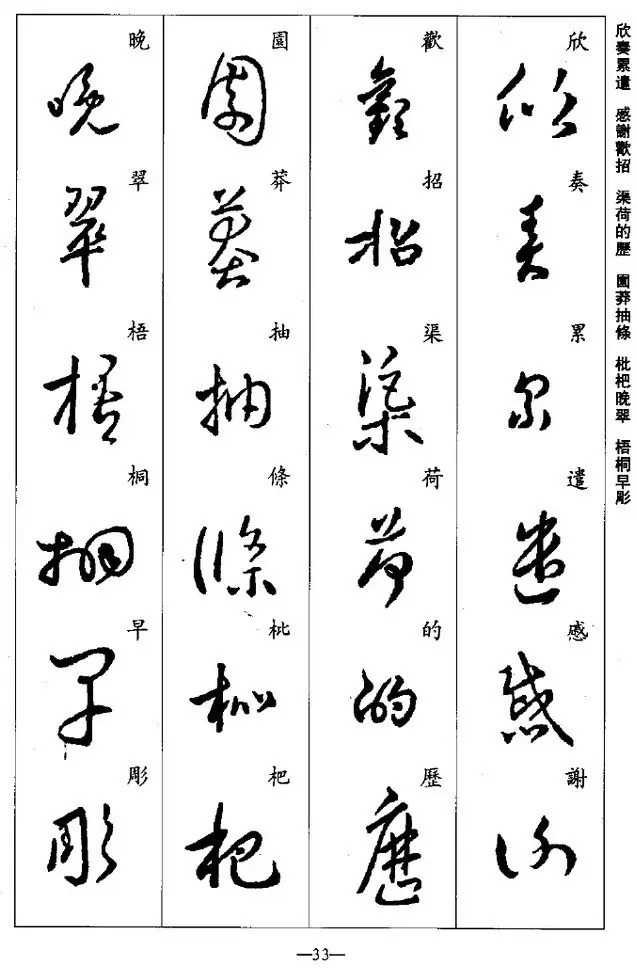 欣奏累遣 感謝歡招 渠荷的歷 園莽抽條 枇杷晚翠 梧桐早彫
欣奏累遣感謝
欣奏累遣感謝
歡招渠荷的歷
歡招渠荷的歷
園莽抽條枇杷
園莽抽條枇杷
晚翠梧桐早彫
晚翠梧桐早彫
—33—